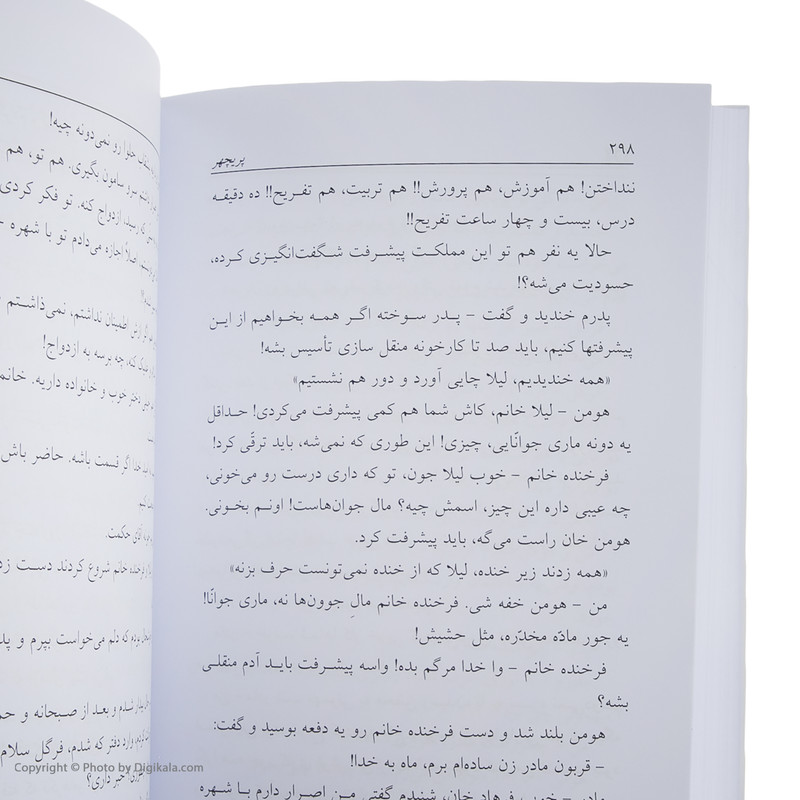 ۲۹۸
پریچهر
ننداختن! هم آموزش، هم پرورش!! هم تربیت، هم تفریح!! ده دقیقه
درس، بیست و چهار ساعت تفریح!!
حالا یه نفر هم تو این مملکت پیشرفت شگفت‌انگیزی کرده،
حسودیت می‌شه؟!
پدرم خندید و گفت – پدر سوخته اگر همه بخواهیم از این
پیشرفتها کنیم، باید صد تا کارخونه منقل سازی تأسیس بشه!
«همه خندیدیم، لیلا چایی آورد و دور هم نشستیم»
هومن – لیلا خانم، کاش شما هم کمی پیشرفت می‌کردی! حداقل
یه دونه ماری جوانّایی، چیزی! این طوری که نمی‌شه، باید ترقّی کرد!
فرخنده خانم – خوب لیلا جون، تو که داری درست رو می‌خونی،
چه عیبی داره این چیز، اسمش چیه؟ مال جوان‌هاست! اونم بخونی.
هومن خان راست می‌گه، باید پیشرفت کرد.
«همه زدند زیر خنده، لیلا که از خنده نمی‌تونست حرف بزنه»
من – هومن خفه شی. فرخنده خانم مالِ جوون‌ها نه، ماری جوانّا!
یه جور مادّه مخدّره، مثل حشیش!
فرخنده خانم – وا خدا مرگم بده! واسه پیشرفت باید آدم منقلی
بشه؟
هومن بلند شد و دست فرخنده خانم رو یه دفعه بوسید و گفت:
– قربون مادر زن ساده‌ام برم، ماه به خدا!
مادر – خوب فرهاد خان، شنیدم گفتی من اصرار دارم با شهره
حلوا رو نمی‌دونه چیه!
سرو سامون بگیری. هم تو، هم
ازدواج کنه. تو فکر کردی
اصلاً اجازه می‌دادم تو با شهره
اطمینان نداشتم، نمی‌ذاشتم
چه برسه به ازدواج!
دختر خوب و خانواده داریه. خانم
اگر قسمت باشه. حاضر باش
آقای حکمت.
فرخنده خانم شروع کردند دست زدن
بودم که دلم می‌خواست بپرم و
شدم و بعد از صبحانه و
وارد دفتر که شدم، فرگل سلام
خبر داری؟
Copyright © Photo by Digikala.com